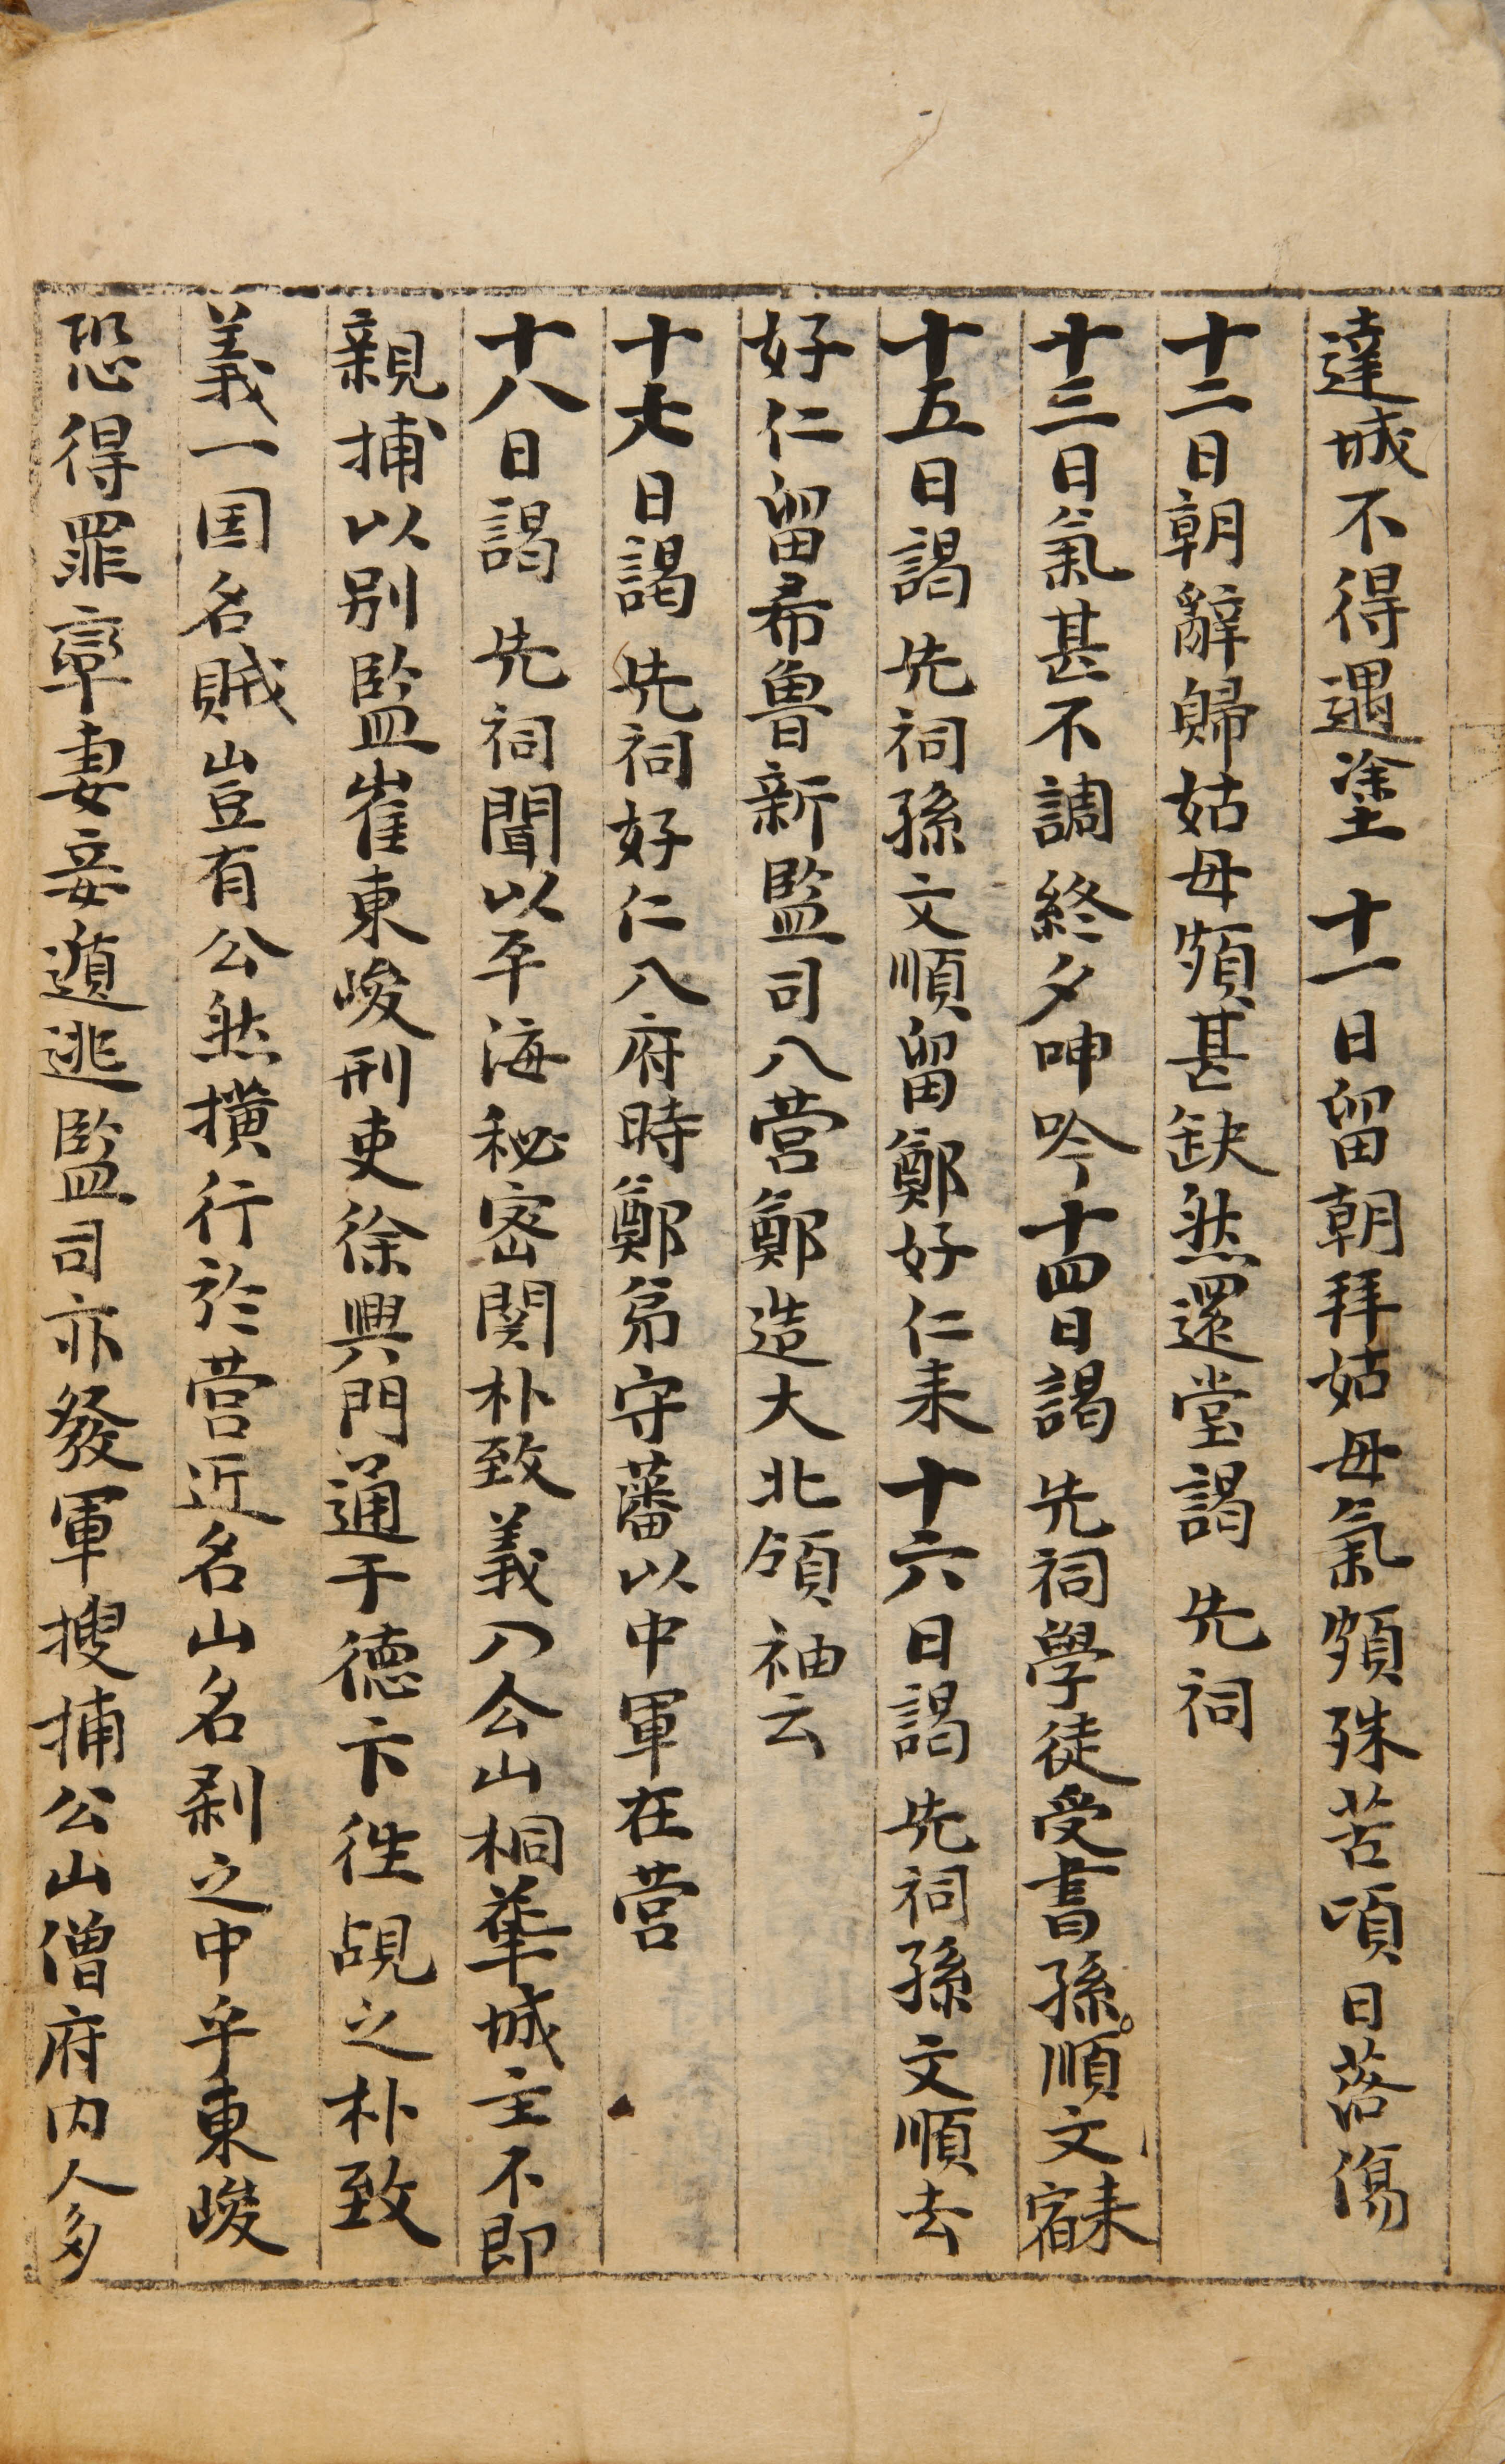 達城不得遇塗 十一日留朝拜姑母氣頗殊苦項日落傷
十二日朝辭歸姑母頗甚缺然還堂謁 先祠
十三日氣甚不調終夕呻吟十四日謁 先祠學徒受書孫順文来宿
十五日謁 先祠孫文順留鄭好仁来十六日謁 先祠孫文順去
好仁留希魯新監司入営鄭造大北領袖云
十七日謁 先祠好仁入府時鄭矛守藩以中軍在営
十八日謁 先祠聞以平海秘密関朴致義入公山桐華城主不即
親捕以别監崔東峻刑吏徐興門通于徳卞徃覘之朴致
義一囯名賊豈有公然横行於営近名山名刹之中乎東峻
恐得罪率妻妾遁逃監司亦發軍搜捕公山僧府内人多